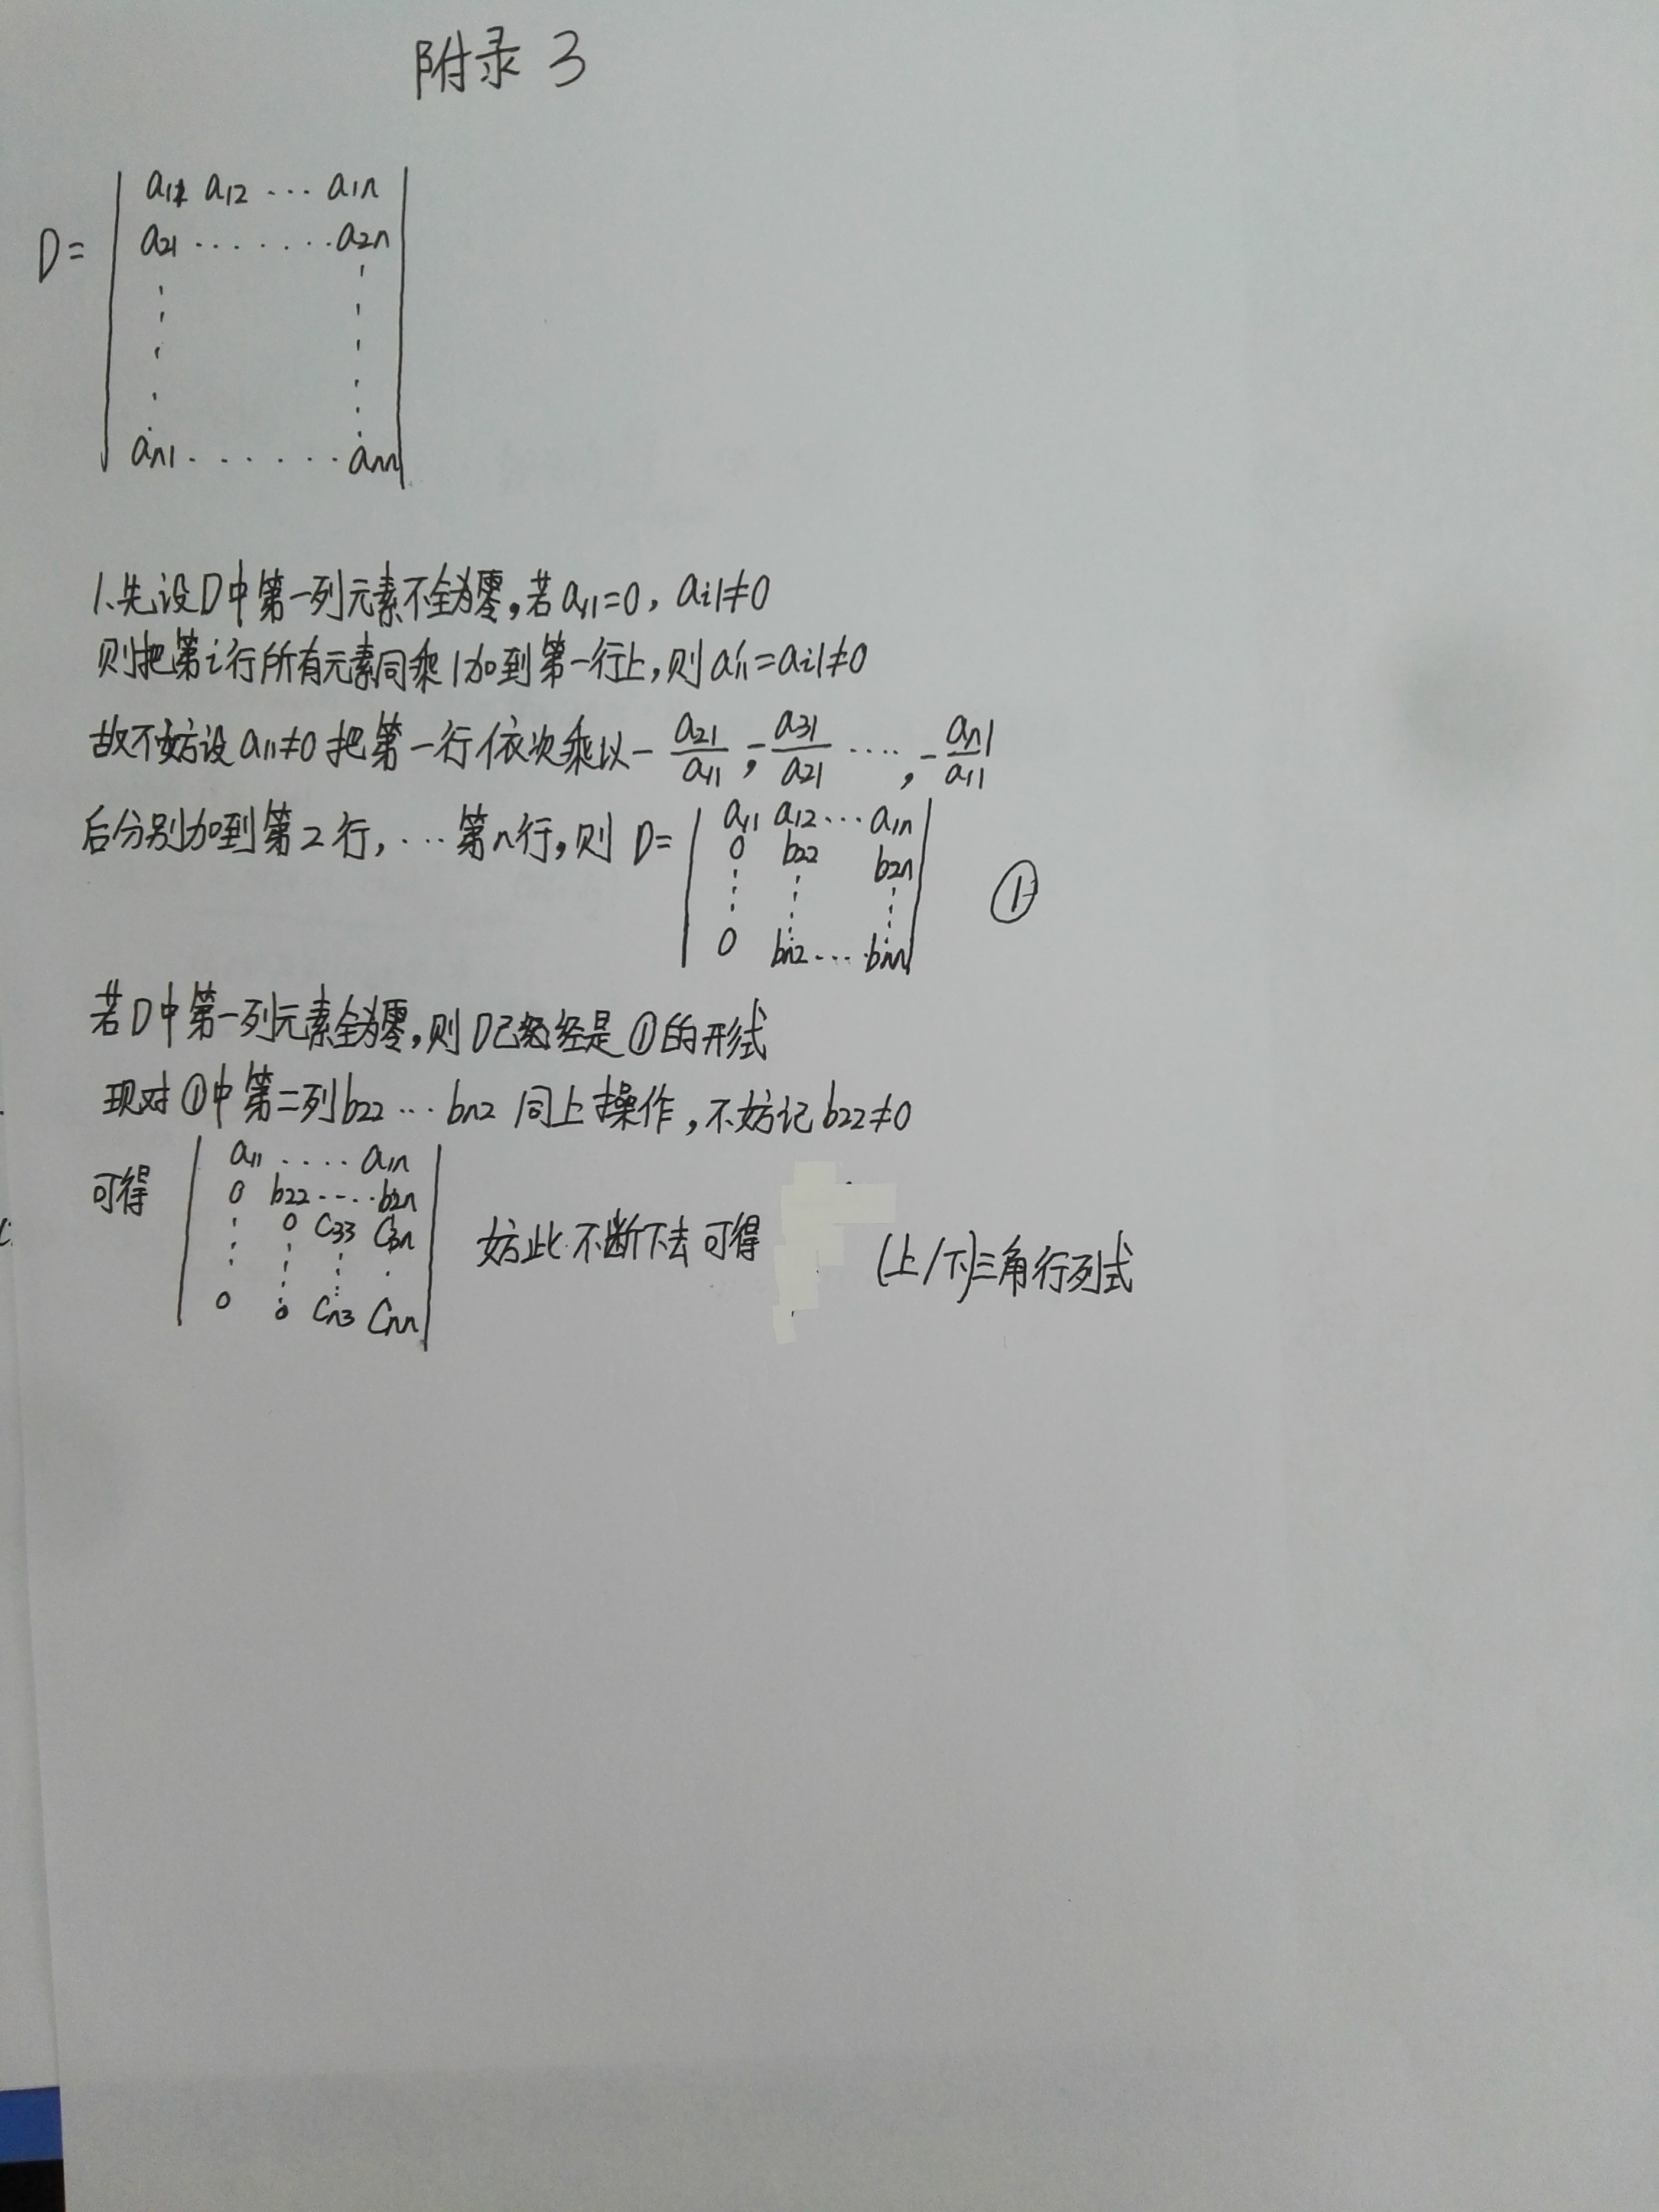 附录 3
D= | a11 a12 ... a1n |
| a21 ....... a2n |
| an1 ....... ann |
1.先设D中第一列元素不全为零,若a11=0, ai1≠0
则把第i行所有元素同乘1加到第一行上,则a'11=ai1≠0
故不妨设a11≠0 把第一行依次乘以 -a21/a11, -a31/a21 ...., -an1/a11
后分别加到第2行,...第n行,则 D= | a11 a12 ... a1n |
| 0 b22 b2n |
| 0 bn2 .... bnn | ①
若D中第一列元素全为零,则D已经是①的形式
现对①中第二列b22 ... bn2 同上操作,不妨记b22≠0
可得 | a11 .... a1n |
| 0 b22 .... b2n |
| 0 c33 c3n |
| 0 0 cn3 cnn |
妨此不断下去可得 (上/下)三角行列式